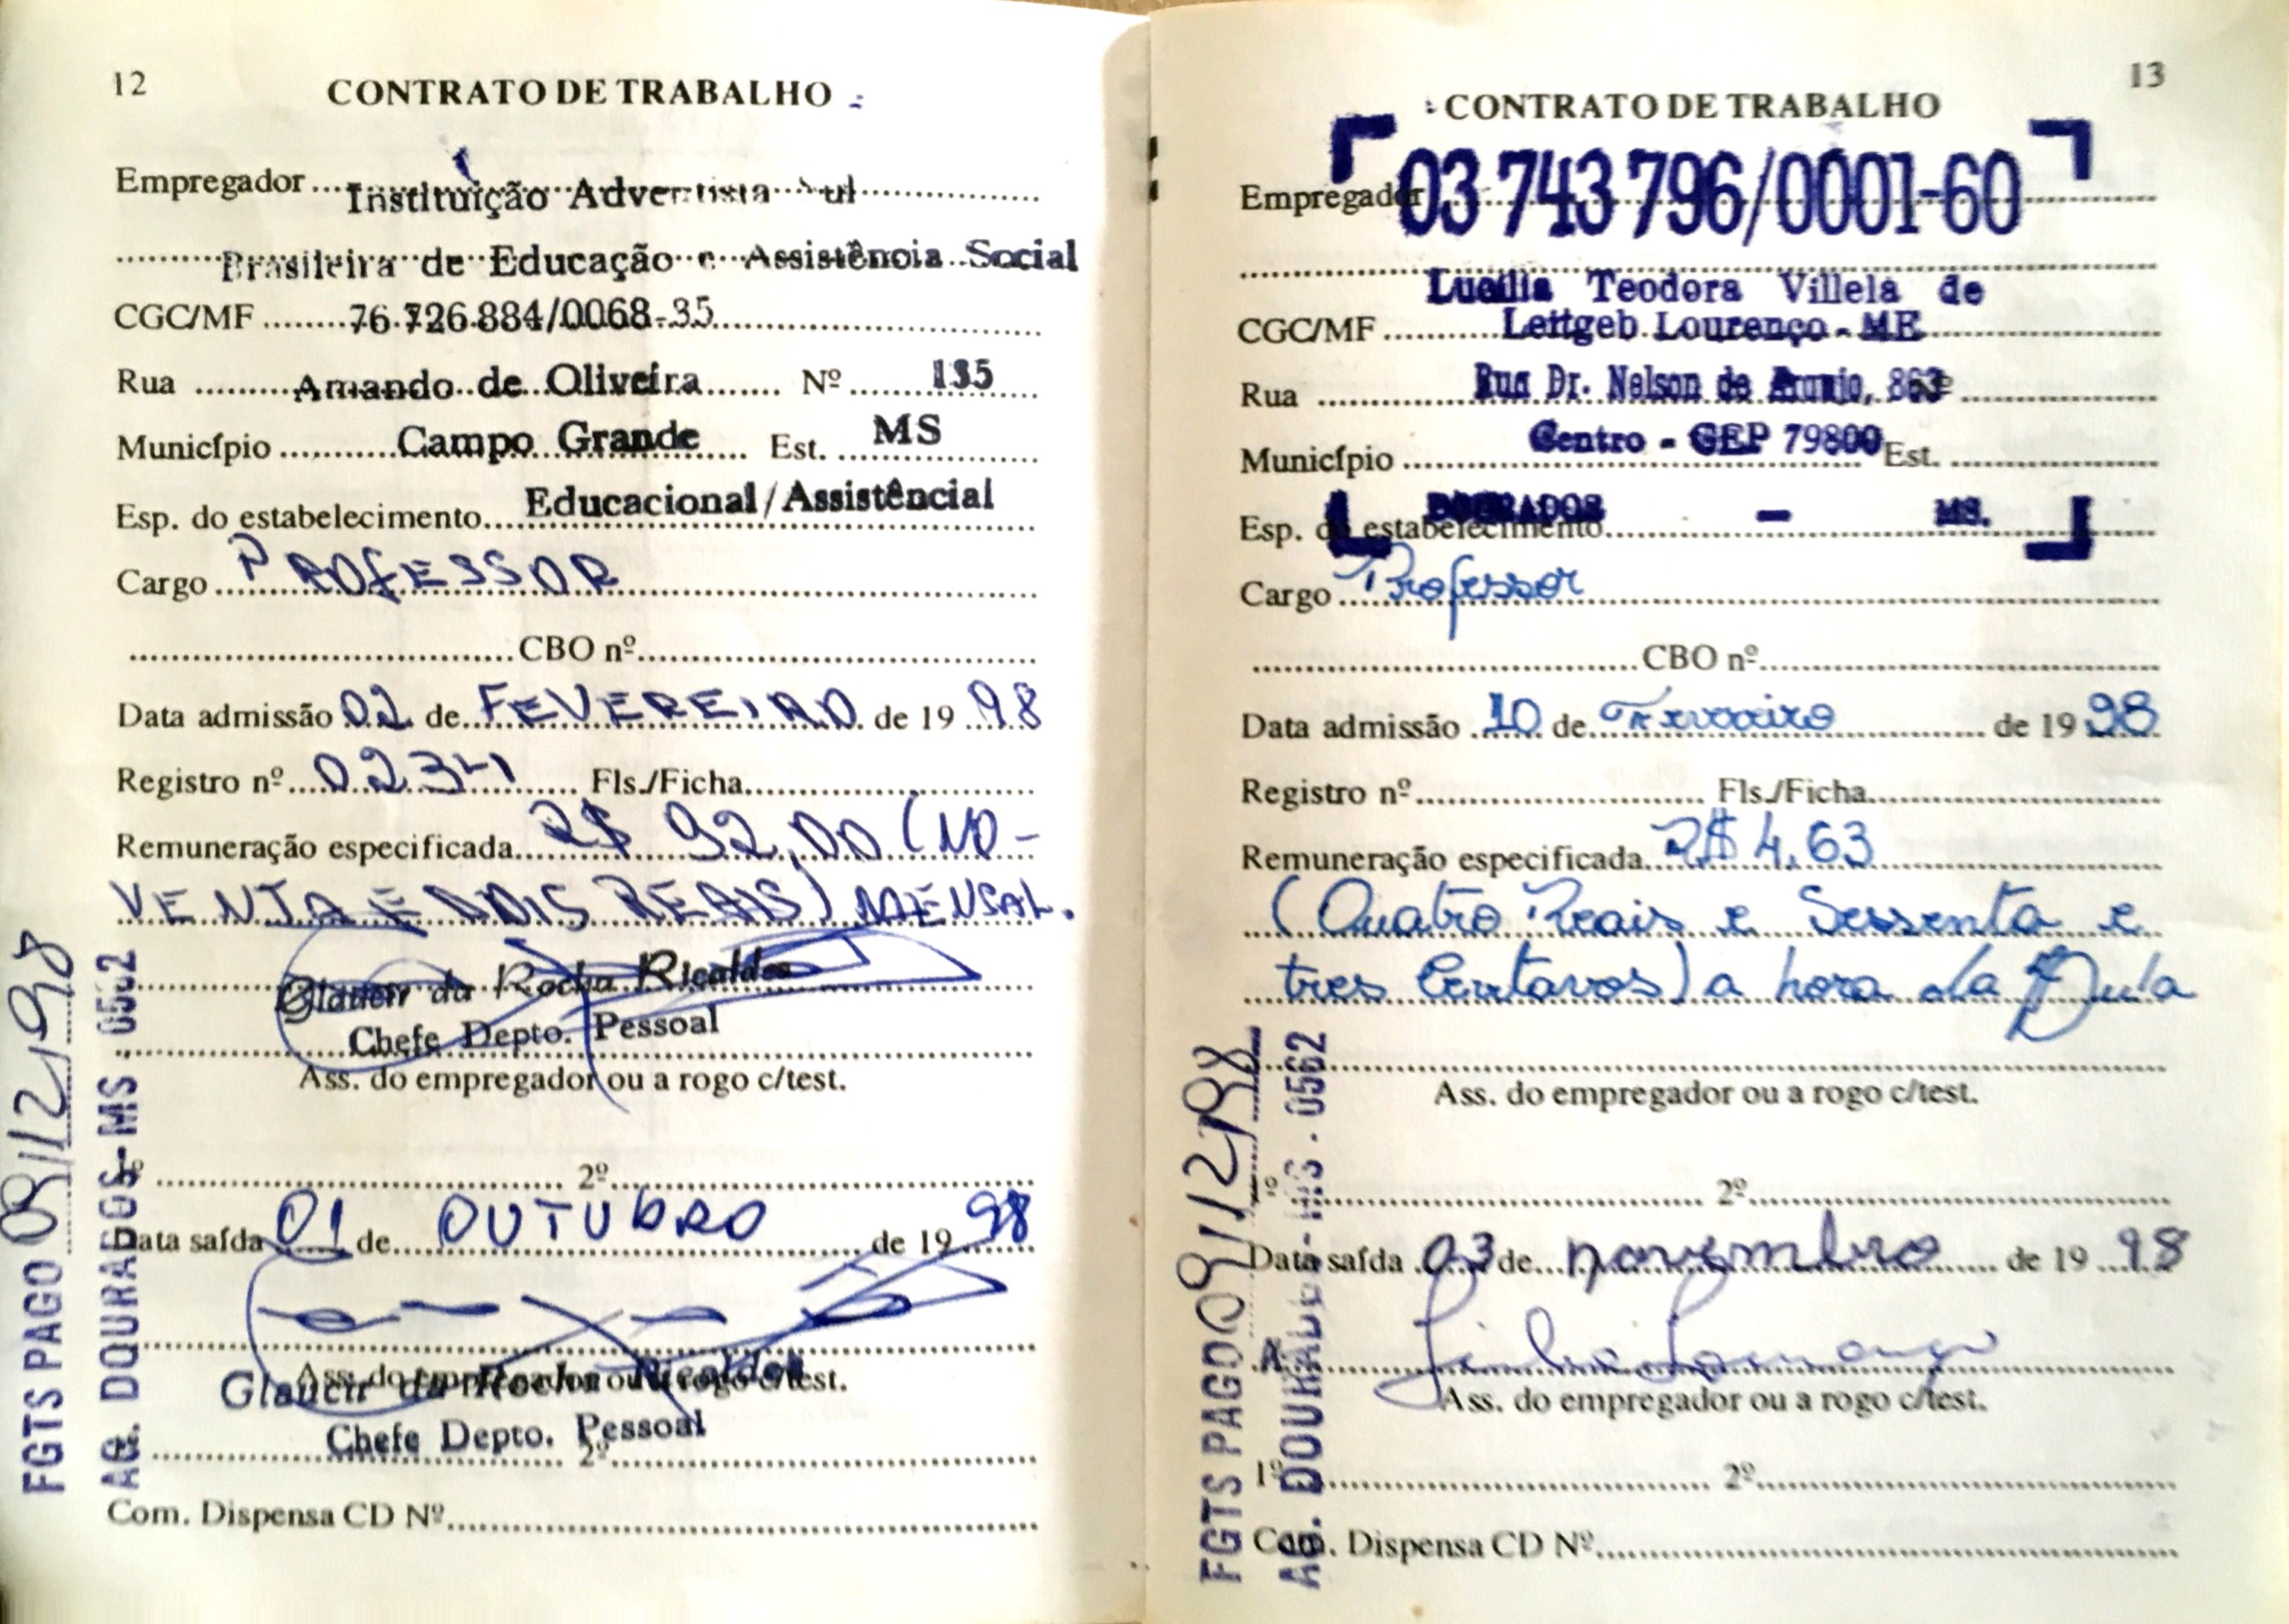 12
CONTRATO DE TRABALHO
Empregador Instituição Adventista Sul
Brasileira de Educação e Assistência Social
CGC/MF 76.726.884/0068-35
Rua Amando de Oliveira Nº 135
Município Campo Grande Est. MS
Esp. do estabelecimento Educacional/Assistêncial
Cargo PROFESSOR
CBO nº
Data admissão 02 de FEVEREIRO de 1998
Registro nº 02341 Fls./Ficha
Remuneração especificada R$ 92,00 (NO-
VENTA E DOIS REAIS) MENSAL.
Glaucir da Rocha Ricaldes
Chefe Depto. Pessoal
Ass. do empregador ou a rogo c/test.
1º 2º
Data saída 01 de OUTUBRO de 1998
Ass. do empregador ou a rogo c/test.
Glaucir da Rocha Ricaldes
Chefe Depto. Pessoal
2º
Com. Dispensa CD Nº
FGTS PAGO 09/12/98
AG. DOURADOS-MS . 0562
13
CONTRATO DE TRABALHO
Empregador 03 743 796/0001-60
Lucilia Teodora Villela de
CGC/MF Leitgeb Lourenço - ME
Rua Rua Dr. Nelson de Araujo, 863 Nº
Centro - CEP 79800
Município Est.
DOURADOS - MS.
Esp. do estabelecimento
Cargo Professor
CBO nº
Data admissão 10 de Fevereiro de 1998
Registro nº Fls./Ficha
Remuneração especificada R$ 4,63
(Quatro Reais e Sessenta e
tres Centavos) a hora da Aula
Ass. do empregador ou a rogo c/test.
1º 2º
Data saída 03 de novembro de 1998
Ass. do empregador ou a rogo c/test.
1º 2º
Com. Dispensa CD Nº
FGTS PAGO 09/12/98
AG. DOURADOS-MS . 0562